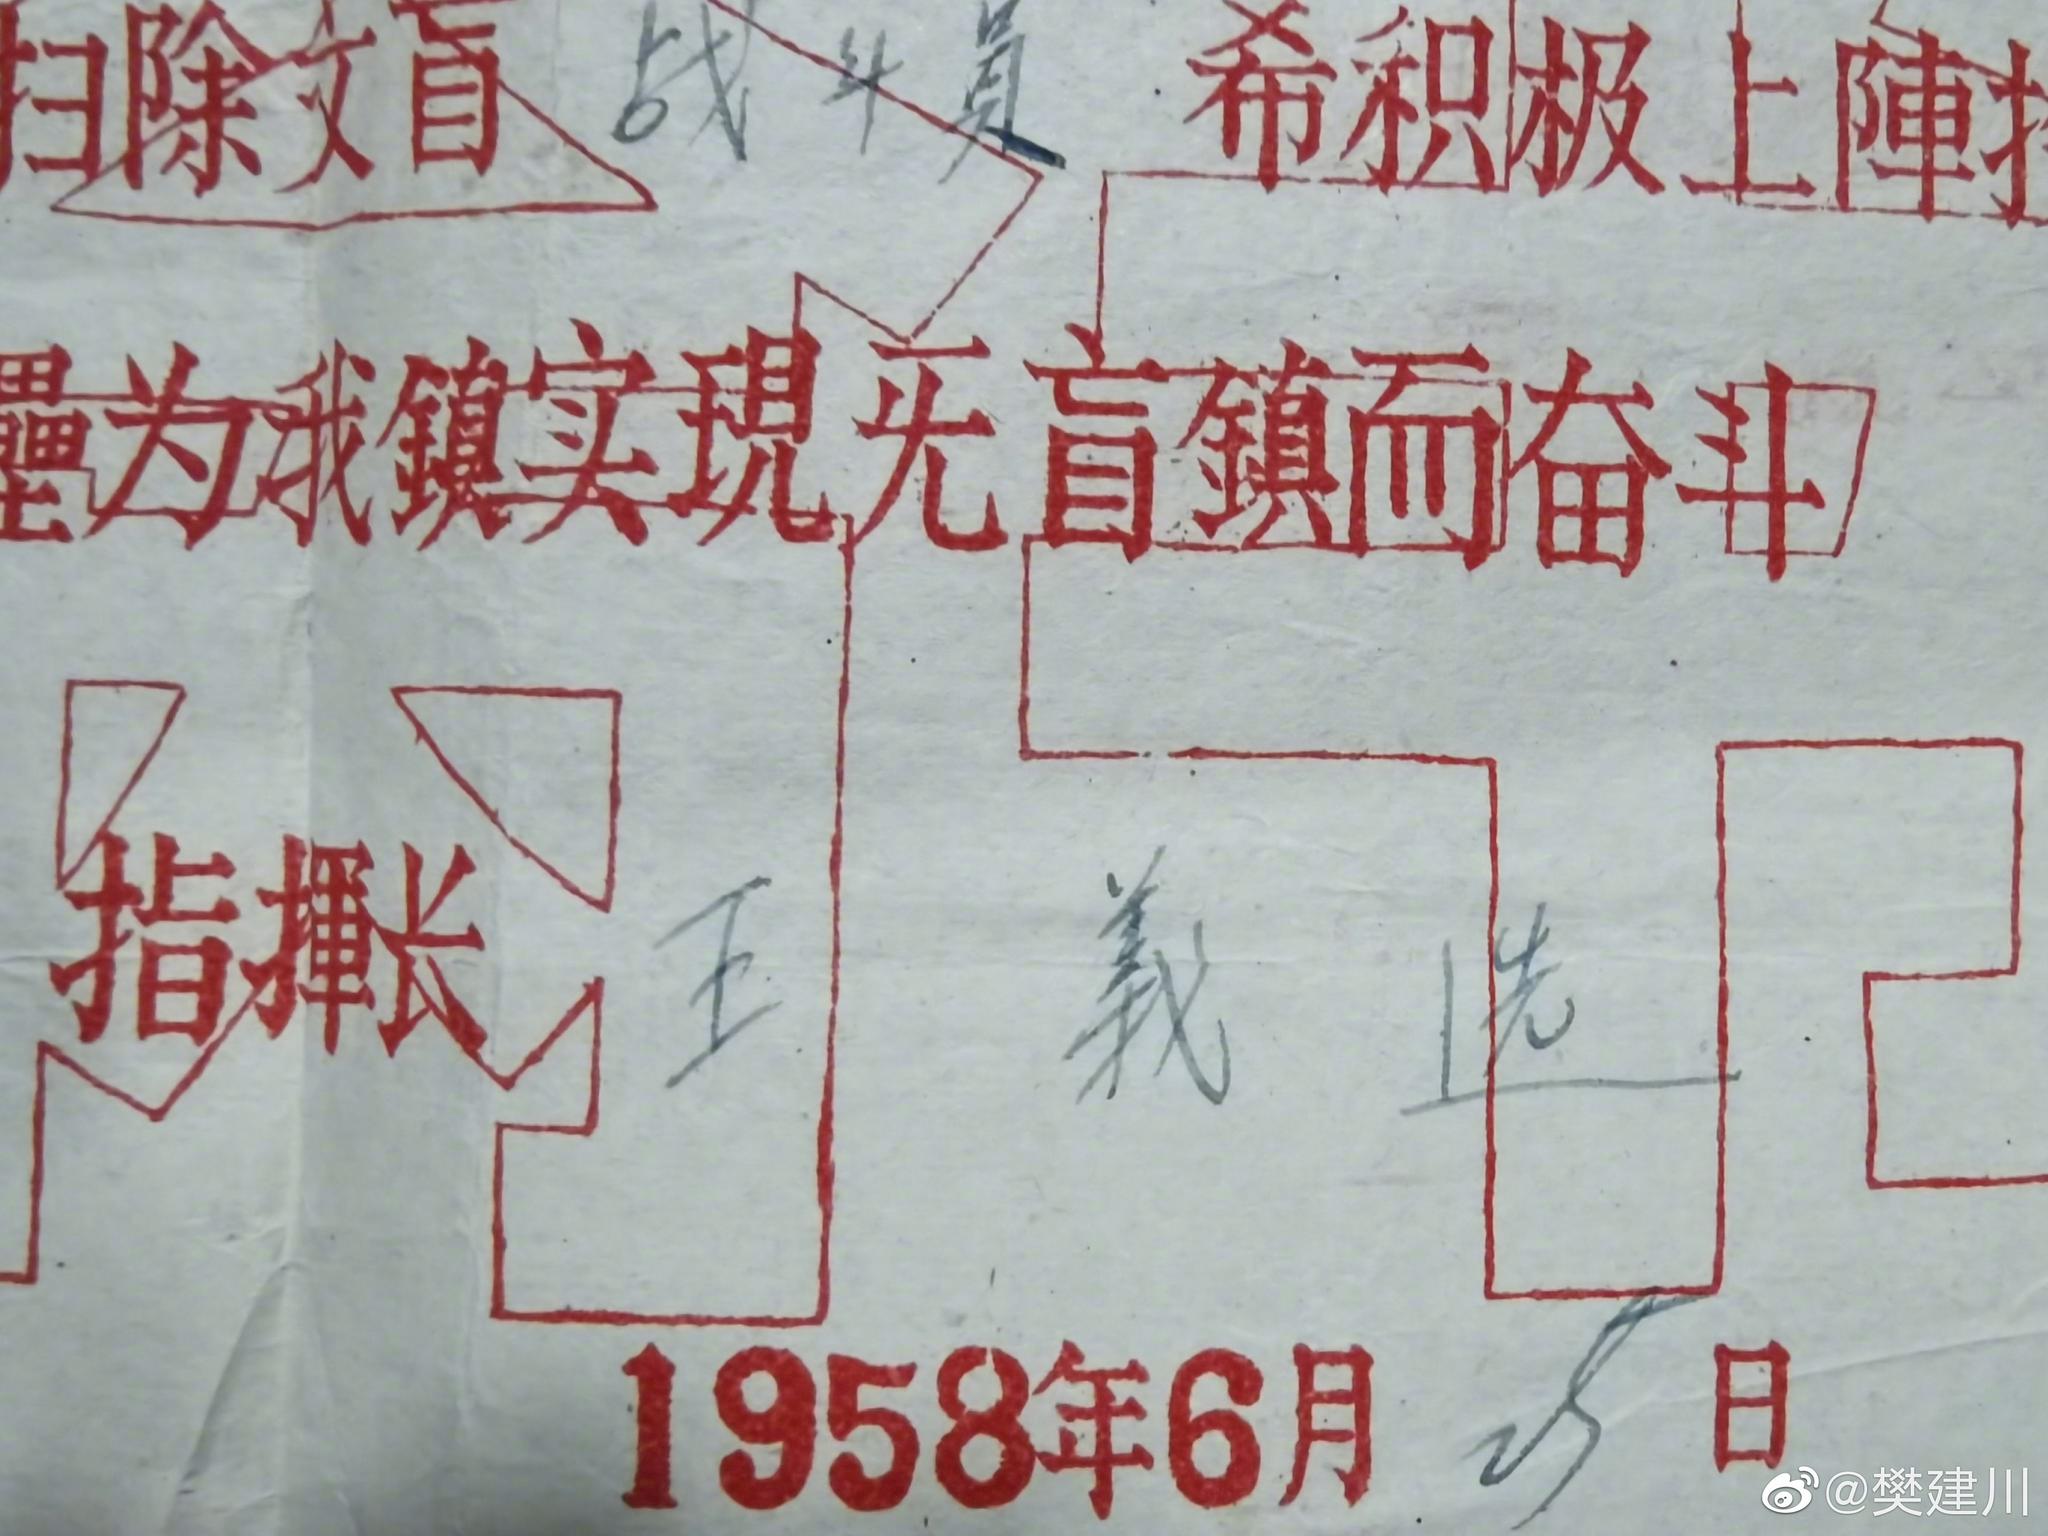 扫除文盲战斗员 希积极上陣
壘为我鎮实現无盲鎮而奋斗
指揮长 王義选
1958年6月25日
@樊建川